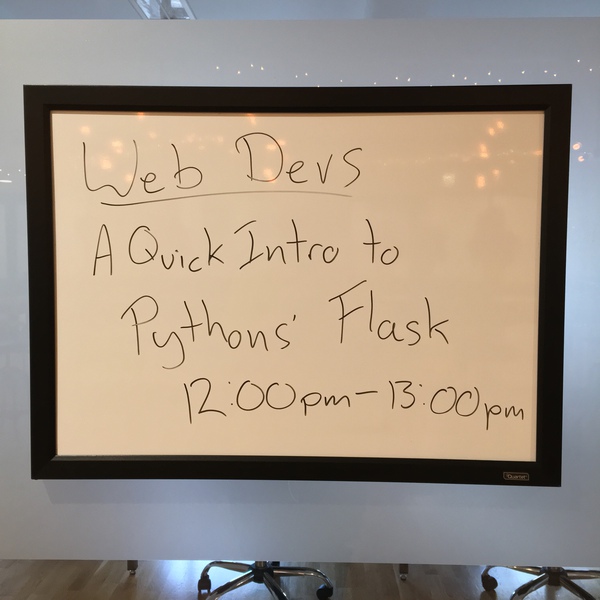 Web Devs
A Quick Intro to
Pythons' Flask
12:00pm - 13:00pm
Quartet